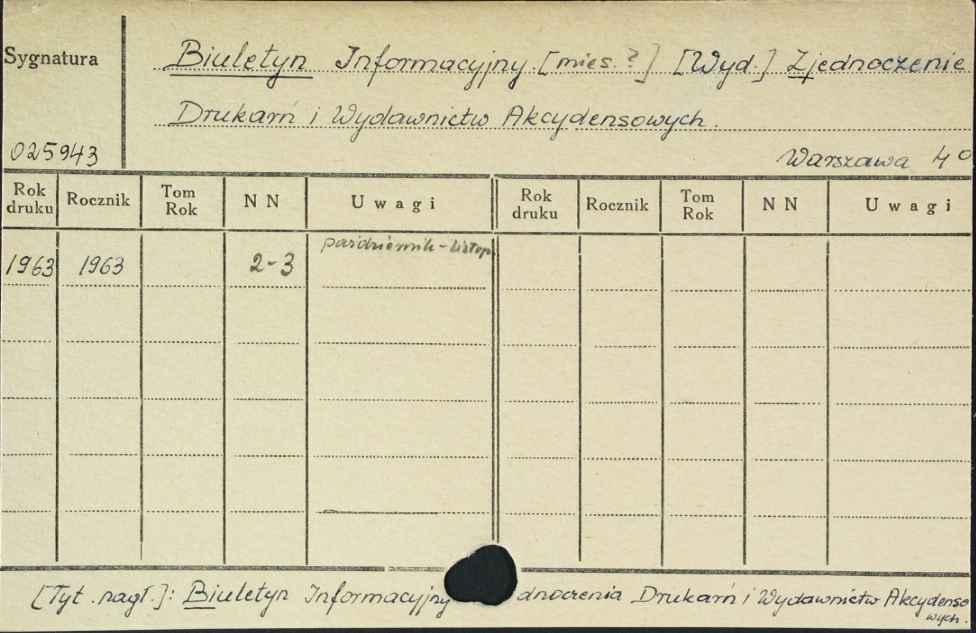 Sygnatura
Biuletyn Informacyjny [mies.?] [Wyd.] Zjednoczenie
Drukarń i Wydawnictw Akcydensowych.
025943
Warszawa 4º
Rok druku Rocznik Tom Rok NN Uwagi Rok druku Rocznik Tom Rok NN Uwagi
październik - listop.
1963 1963 2-3
[Tyt. nagł.]: Biuletyn Informacyjny dnoczenia Drukarń i Wydawnictw Akcydenso
wych.